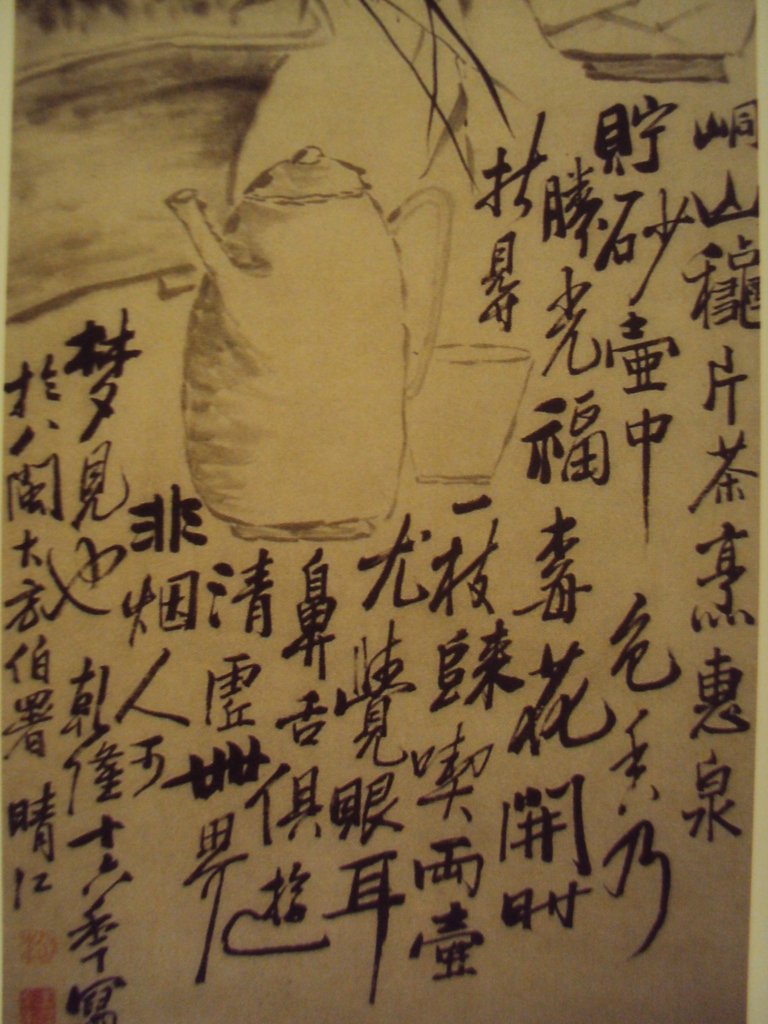 峒山龝片茶烹惠泉
貯砂壺中色香乃
勝光福梅花開時
折得一枝歸喫兩壺
尤覺眼耳
鼻舌俱遊
清虛世界
非烟人可
梦見也乾隆十六年寫
於八閩大方伯署 晴江